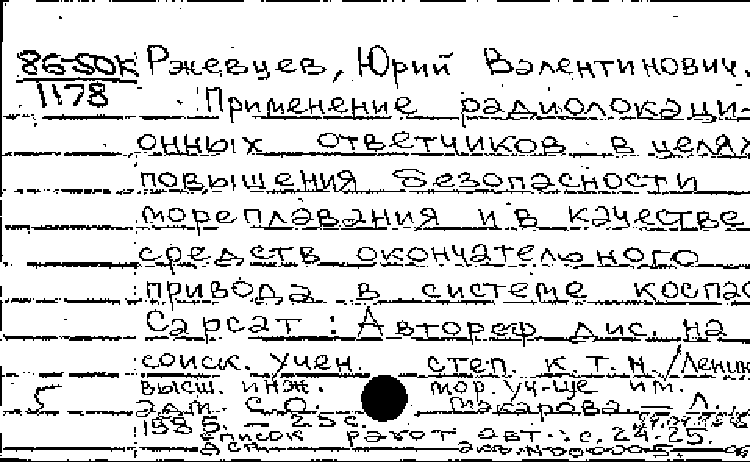 86-50К Ржевцев, Юрий Валентинович.
1178 Применение радиолокаци-
онных ответчиков в целях
повышения безопасности
мореплавания и в качестве
средств окончательного
привода в системе коспас
Сарсат : Автореф дис. на
соиск. учен. степ. к. т. н. / Ленин
высш. инж. мор. уч-ще им.
адм. С. О. Макарова. — Л.
1985. — 25 с.
Список работ авт.: с. 24-25.